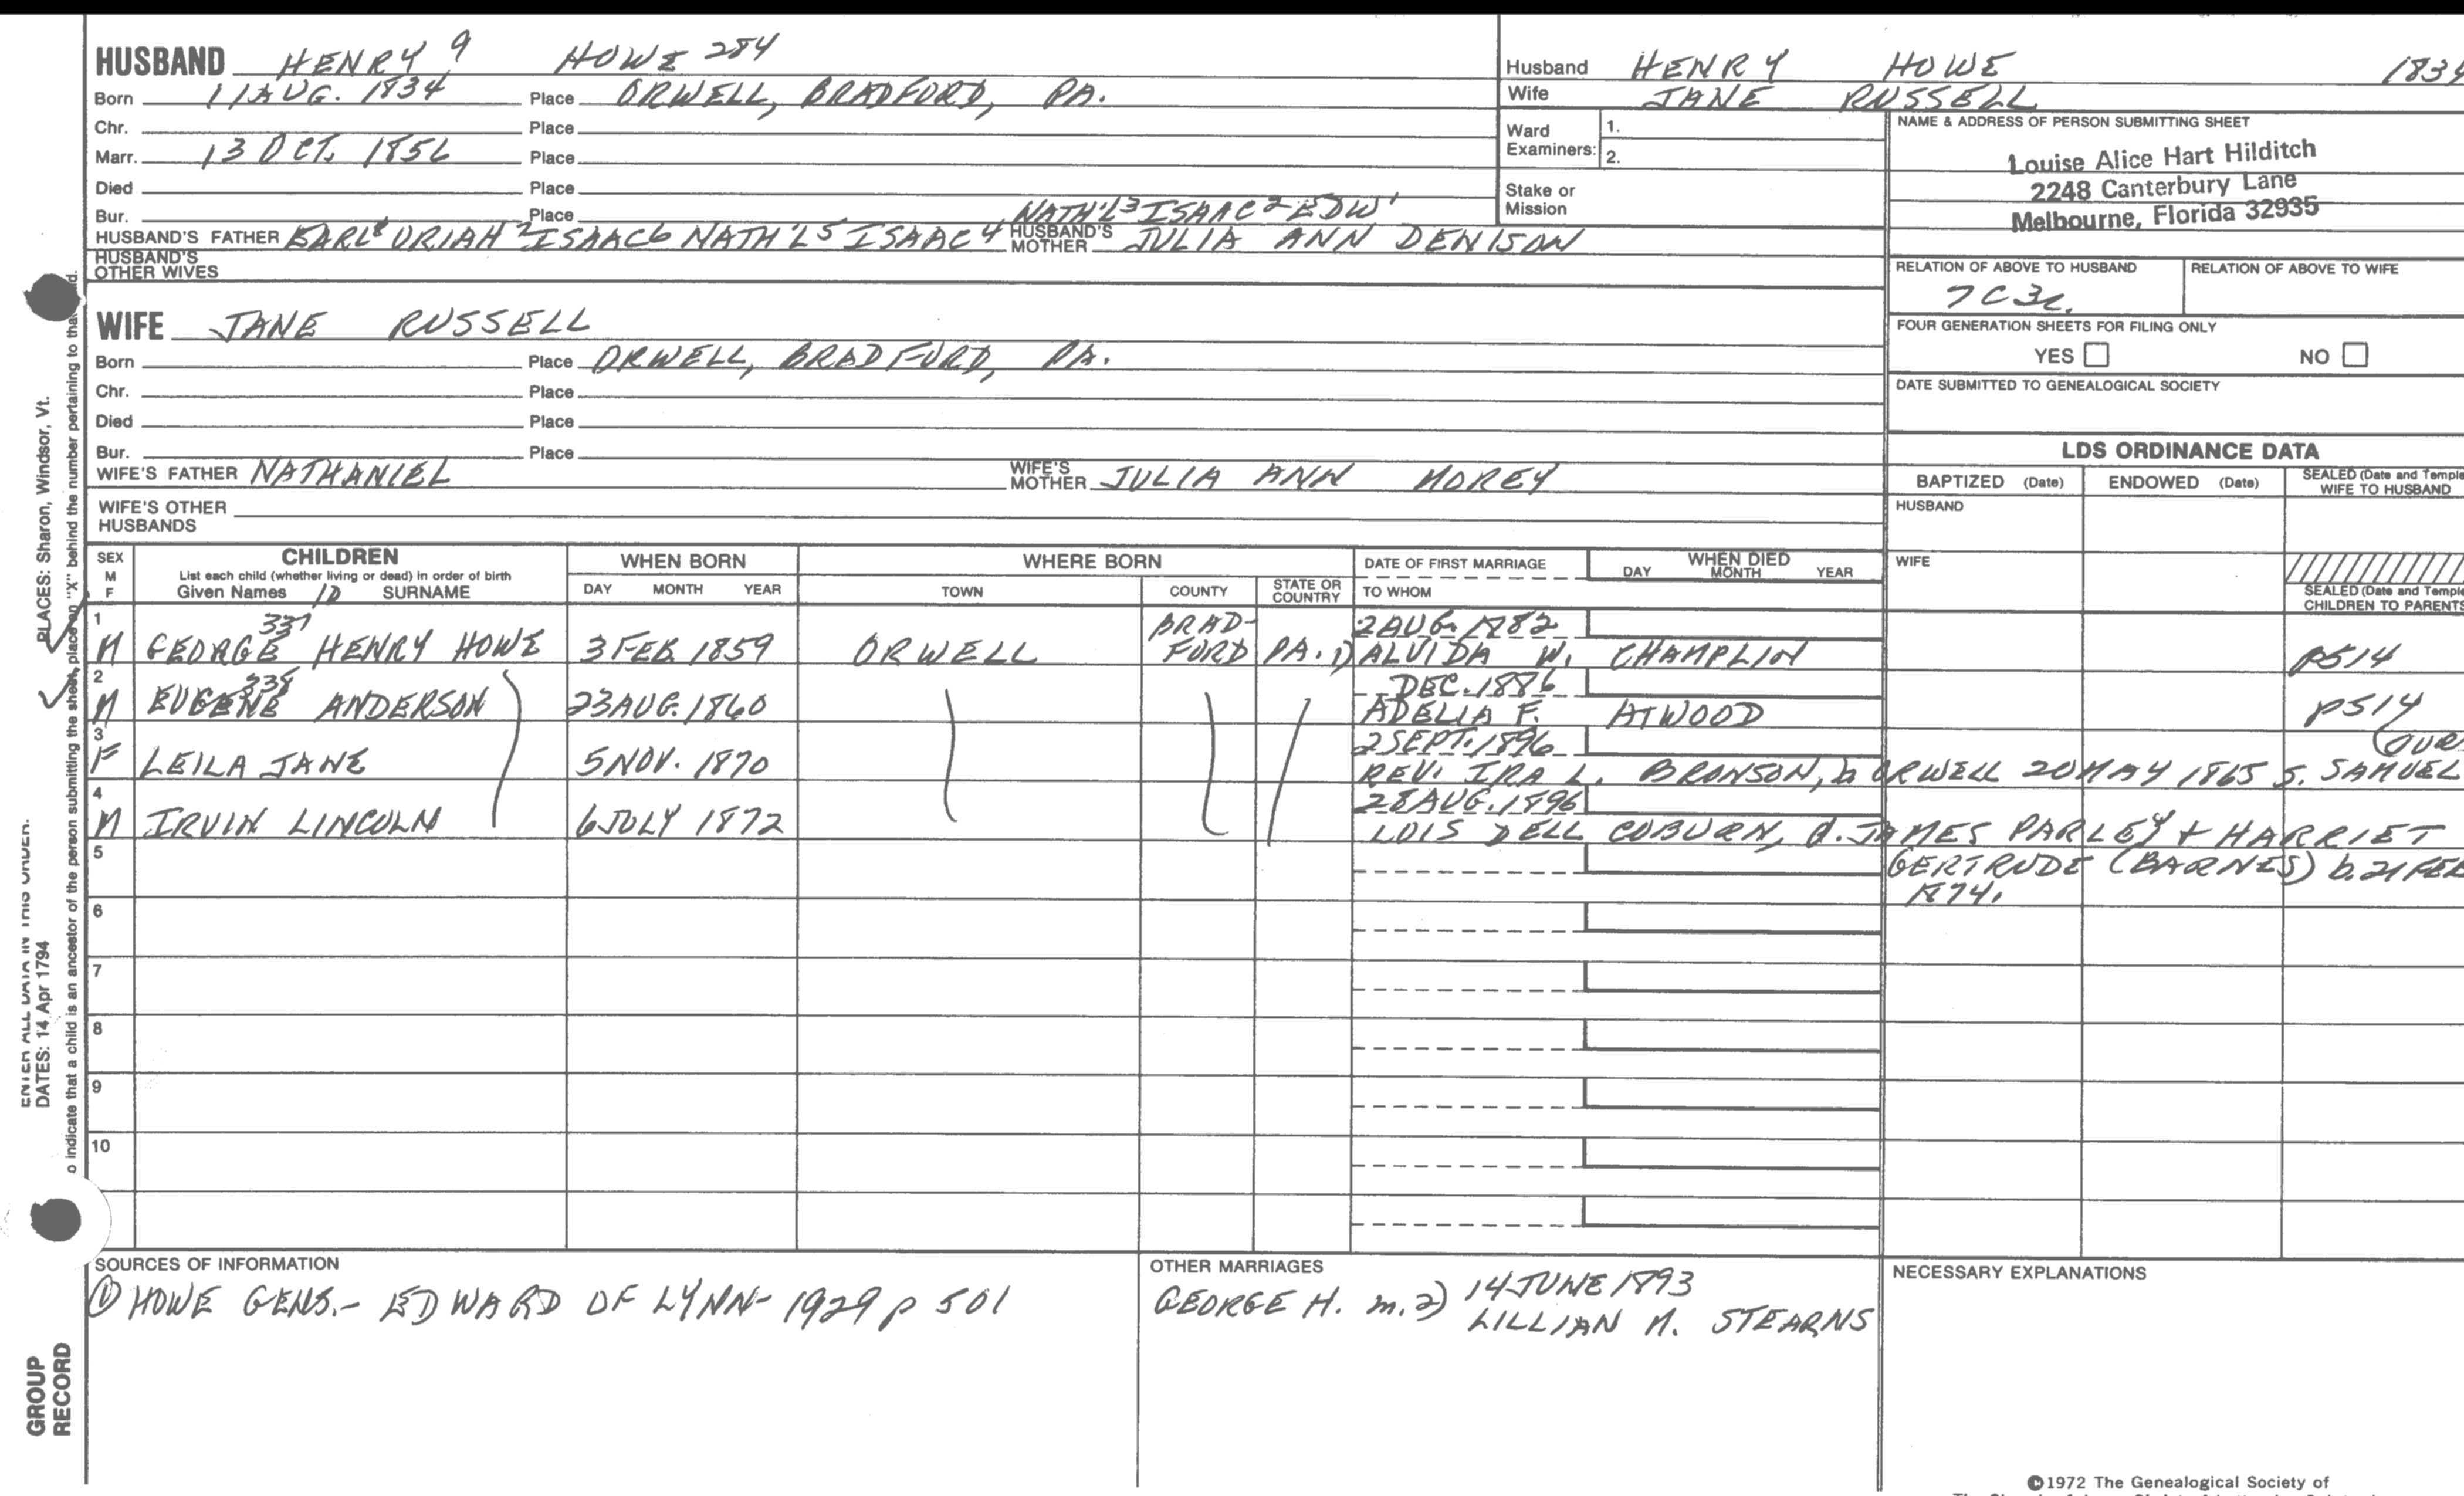 HUSBAND HENRY 9 HOWE 284
Born 11 AUG. 1834 Place ORWELL, BRADFORD, PA.
Chr. Place
Marr. 13 OCT. 1856 Place
Died Place
Bur. Place NATH'L 3 ISAAC 2 EDW 1
HUSBAND'S FATHER EARL 8 URIAH 7 ISAAC 6 NATH'L 5 ISAAC 4 HUSBAND'S MOTHER JULIA ANN DENISON
HUSBAND'S OTHER WIVES
WIFE JANE RUSSELL
Born Place ORWELL, BRADFORD, PA.
Chr. Place
Died Place
Bur. Place
WIFE'S FATHER NATHANIEL WIFE'S MOTHER JULIA ANN MOREY
WIFE'S OTHER HUSBANDS
Husband HENRY HOWE 1834
Wife JANE RUSSELL
Ward Examiners: 1.
2.
Stake or Mission
NAME & ADDRESS OF PERSON SUBMITTING SHEET
Louise Alice Hart Hilditch
2248 Canterbury Lane
Melbourne, Florida 32935
RELATION OF ABOVE TO HUSBAND RELATION OF ABOVE TO WIFE
7C3R.
FOUR GENERATION SHEETS FOR FILING ONLY
YES NO
DATE SUBMITTED TO GENEALOGICAL SOCIETY
LDS ORDINANCE DATA
BAPTIZED (Date) ENDOWED (Date) SEALED (Date and Temple
WIFE TO HUSBAND
HUSBAND
WIFE
SEALED (Date and Temple
CHILDREN TO PARENTS
SEX M F
CHILDREN
List each child (whether living or dead) in order of birth
Given Names 10 SURNAME
WHEN BORN
DAY MONTH YEAR
WHERE BORN
TOWN COUNTY STATE OR COUNTRY
DATE OF FIRST MARRIAGE
TO WHOM
WHEN DIED
DAY MONTH YEAR
1 337 BRAD- 2 AUG. 1882
M GEORGE HENRY HOWE 3 FEB 1859 ORWELL FORD PA. 1) ALVIDA W. CHAMPLIN P514
2 338 DEC. 1886
M EUGENE ANDERSON 23 AUG. 1860 ADELIA F. ATWOOD P514
3 2 SEPT. 1896 (OVER
F LEILA JANE 5 NOV. 1870 REV. IRA L. BRONSON, b ORWELL 20 MAY 1865 S. SAMUEL
4 28 AUG. 1896
M IRVIN LINCOLN 6 JULY 1872 LOIS DELL COBURN, d. JAMES PARLEY + HARRIET
5 GERTRUDE (BARNES) b. 21 FEB
1874.
6
7
8
9
10
SOURCES OF INFORMATION
① HOWE GENS.- EDWARD OF LYNN- 1929 p 501
OTHER MARRIAGES
GEORGE H. m. 2) 14 JUNE 1893
LILLIAN M. STEARNS
NECESSARY EXPLANATIONS
©1972 The Genealogical Society of
ENTER ALL DATA IN THIS ORDER.
DATES: 14 Apr 1794
PLACES: Sharon, Windsor, Vt.
o indicate that a child is an ancestor of the person submitting the sheet, place an "X" behind the number pertaining to that
GROUP
RECORD